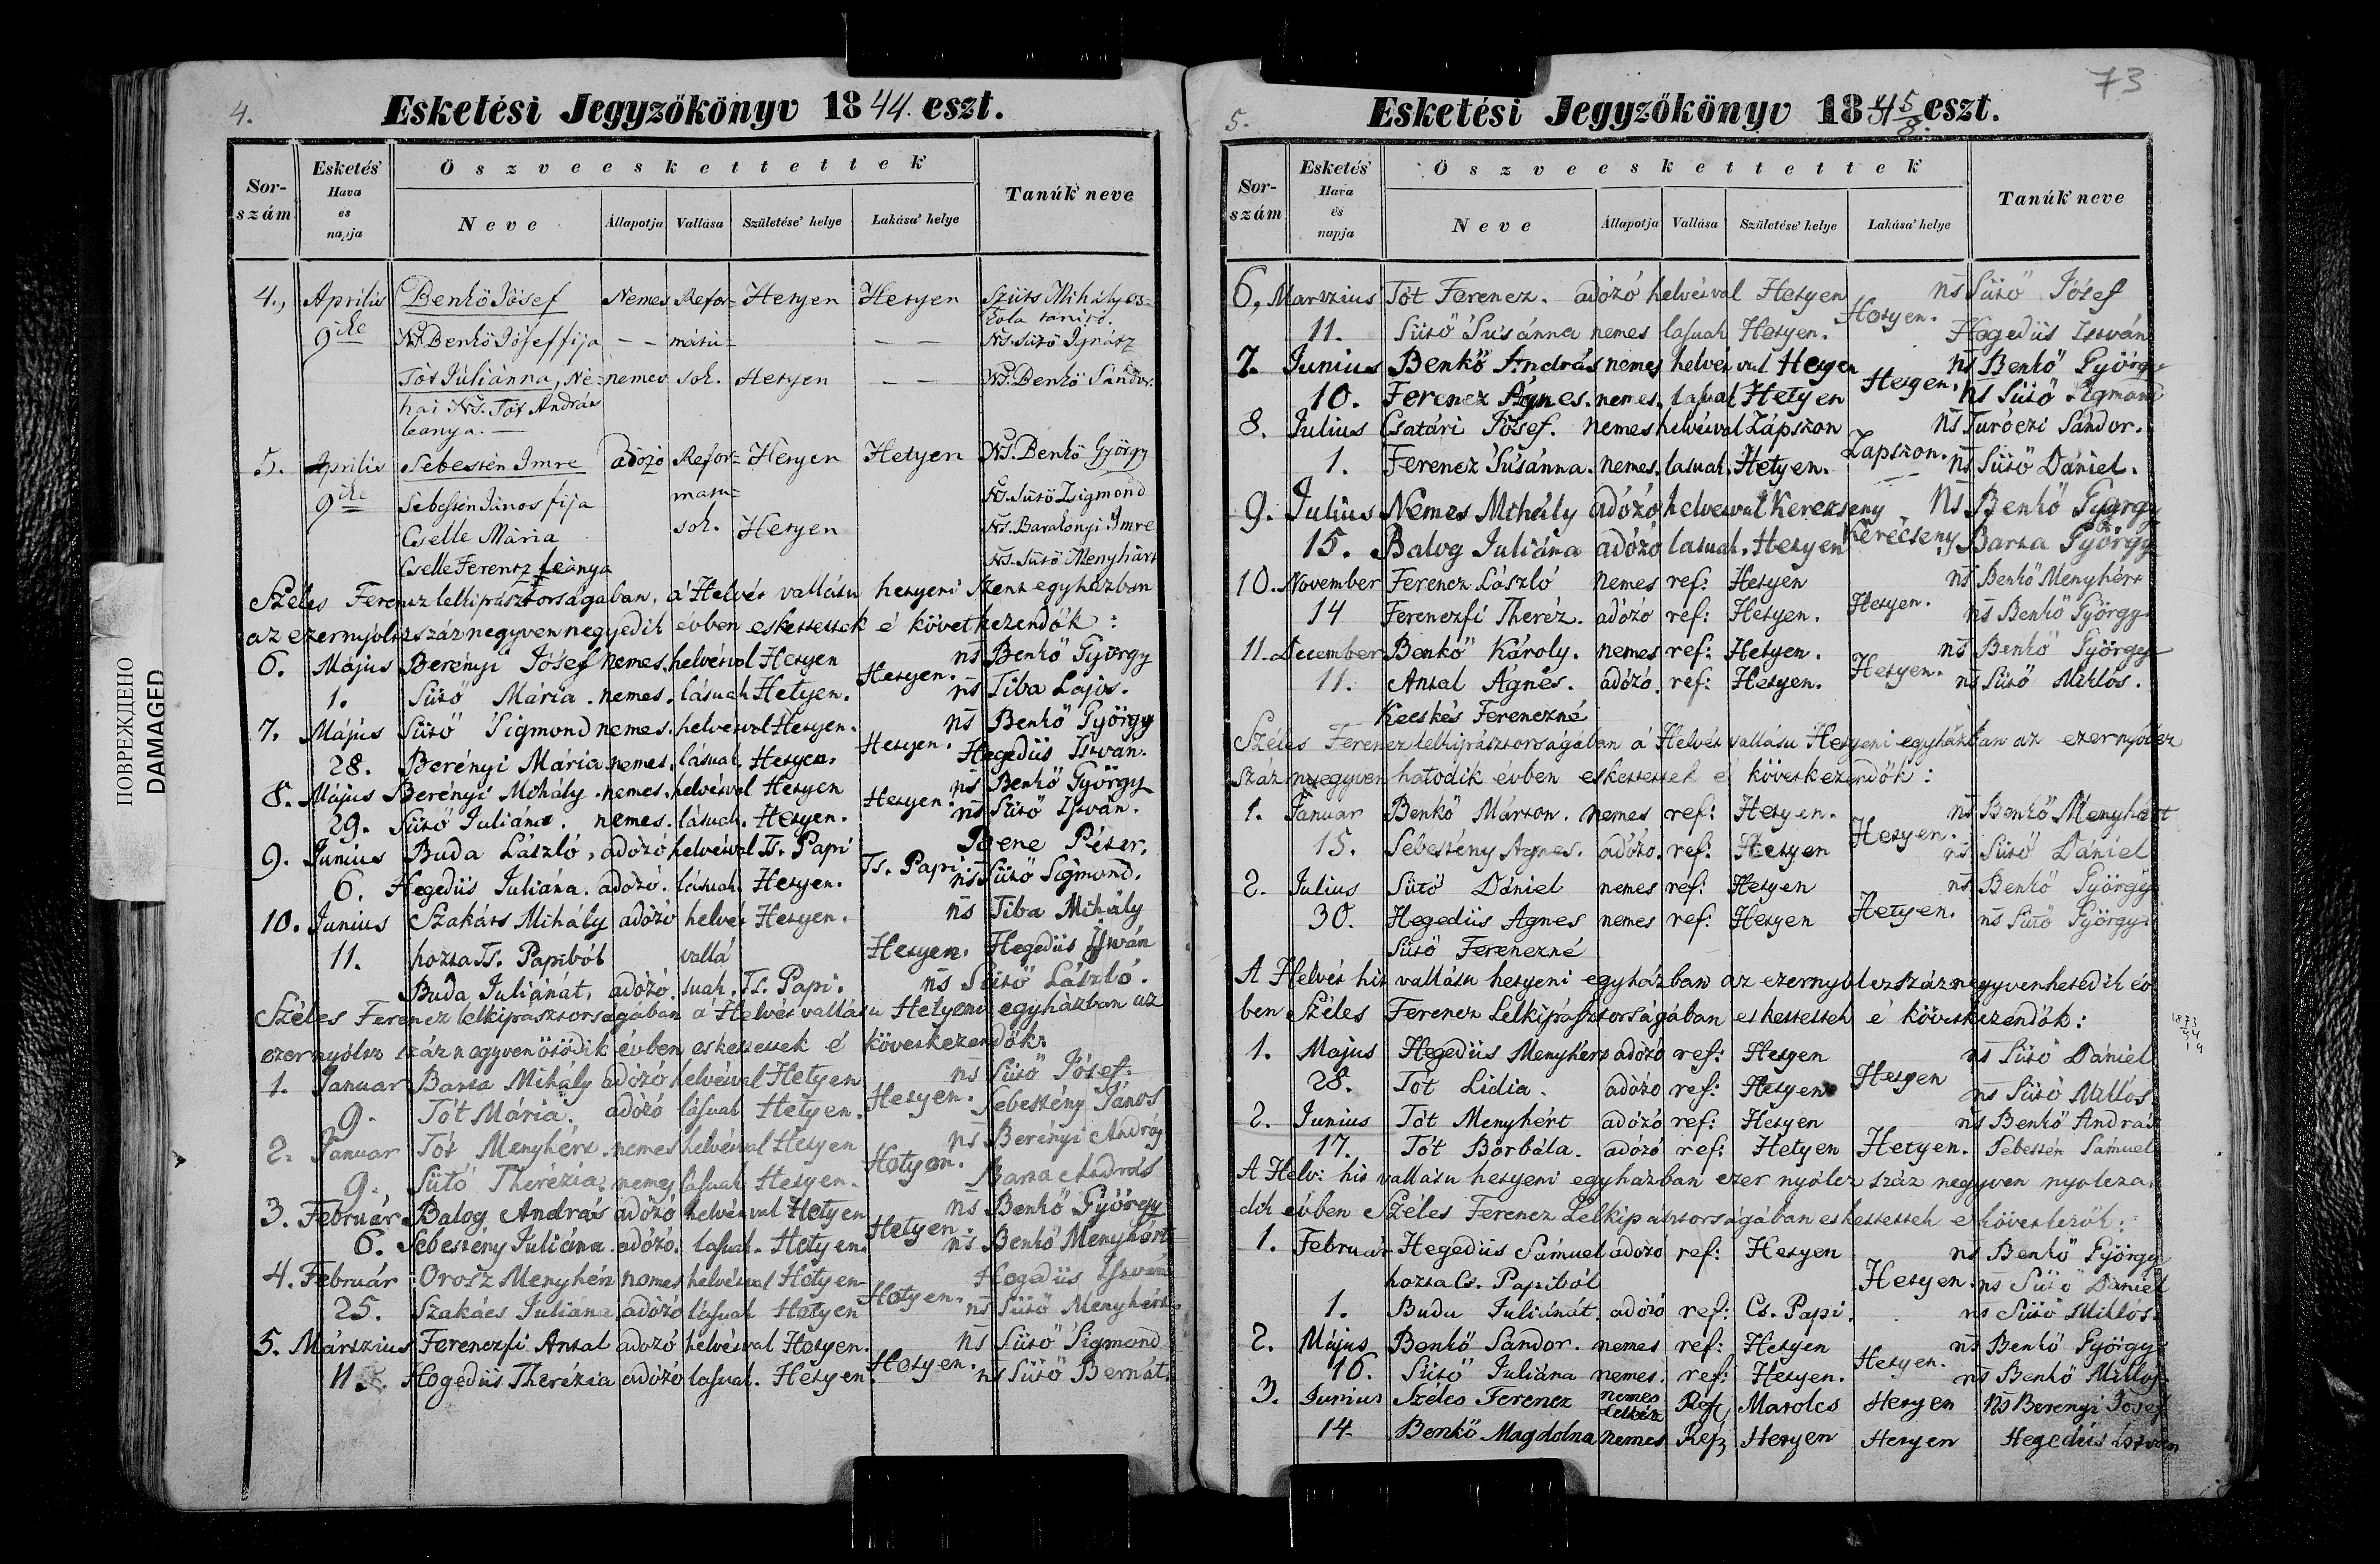 ПОВРЕЖДЕНО
DAMAGED
4.
Esketési Jegyzőkönyv 1844. eszt.
Sor-szám Esketés Hava es napja Öszveeskettettek Tanúk neve
Neve Állapotja Vallása Születése' helye Lakása' helye
4., Aprilis Benkö Jósef Nemes Refor= Hetyen Hetyen Szüts Mihály os=
kola tanitó.
9ike Ns. Benkö Jósef fija — — mátu= — — Ns. Sütö Ignátz
Tót Juliánna, Né= nemes soh. Hetyen — — Ns. Benkö Sándor.
hai Ns. Tót András
leanya. —
5. Aprilis Sebestén Imre adózó Refor= Hetyen Hetyen Ns. Benkö György
9ike Sebestén János fija matu= Ns. Sütö Zsigmond
Cselle Mária soh. Hetyen Ns. Barakonyi Imre
Cselle Ferentz leánya Ns. Sütö Menyhárt
Széles Ferencz lelkipásztorságában, a' Helvét vallásu hetyeni szent egyházban
az ezernyóltzszáznégyvennegyedik évben eskettettek é következendők :
6. Május Berényi Jósef nemes. helvétval Hetyen Hetyen. ns Benkő György
1. Sütő Mária. nemes. lásuak Hetyen. ns Tiba Lajos.
7. Május Sütő Sigmond nemes. helvétval Hetyen. Hetyen. ns Benkő György
28. Berényi Mária nemes. lásuak. Hetyen. Hegedüs István.
8. Május Berényi Mihály. nemes. helvétval Hetyen Hetyen. ns Benkő György
29. Sütő Juliána. nemes. lásuak. Hetyen. ns Sütő István.
9. Junius Buda László, adózó helvétval Ts. Papi Ts. Papi. Bene Péter.
6. Hegedüs Juliána. adózó. lásuak. Hetyen. ns Sütő Sigmond.
10. Junius Szakáts Mihály adózó helvét Hetyen. ns Tiba Mihály
11. hozta Ts. Papiból vallá Hetyen. Hegedüs István
Buda Juliánát, adózó. suak. Ts. Papi. ns Sütő László.
Széles Ferencz lelkipásztorságában a' Helvét vallásu Hetyeni egyházban az
ezernyóltz száz negyvenötödik évben eskettettek é következendők:
1. Januar Barta Mihály adózó helvétval Hetyen Hetyen. ns Sütő Jósef.
9. Tót Mária. adózó lásuak Hetyen. Sebestény János
2. Januar Tót Menyhért. nemes helvétval Hetyen Hetyen. ns Berényi András
9. Sütő Therézia, nemes lásuak Hetyen. Barta András
3. Február Balog András adózó helvétval Hetyen Hetyen. ns Benkő György
6. Sebestény Juliána. adózó. lásuak. Hetyen. ns Benkő Menyhért
4. Február Orosz Menyhért nemes helvétval Hetyen Hetyen. Hegedüs István
25. Szakács Juliána adózó lásuak Hetyen ns Sütő Menyhért
5. Mártzius Ferenczfi Antal adozó helvétval Hetyen. Hetyen. ns Sütő Sigmond
11. Hegedüs Therézia adózó lasuak. Hetyen. ns Sütő Bernát.
73
5.
Esketési Jegyzőkönyv 1845/8. eszt.
Sor-szám Esketés Hava és napja Öszveeskettettek Tanúk neve
Neve Állapotja Vallása Születése' helye Lakása' helye
6, Martzius Tót Ferencz. adózó helvétval Hetyen Hetyen. ns Sütő Jósef
11. Sütő Susánna nemes lasuak Hetyen. Hegedüs István
7. Junius Benkő András nemes helvétval Hetyen Hetyen. ns Benkő György
10. Ferencz Ágnes. nemes. lasuak Hetyen ns Sütő Sigmond
8. Julius Csatári Jósef. nemes helvétval Zápszon Zapszon. ns Turóczi Sándor.
1. Ferencz Susánna. nemes. lasuak. Hetyen. ns Sütő Dániel.
9. Julius Nemes Mihály adózó helvétval Kerecseny Kerecseny. Ns Benkő György
15. Balog Juliána adózó lasuak. Hetyen Barta György
10. November Ferencz László nemes ref: Hetyen Hetyen. ns Benkő Menyhért
14 Ferenczfi Theréz. adózó ref: Hetyen. ns Benkő György.
11. December Benkő Károly. nemes ref: Hetyen. Hetyen. ns Benkő György
11. Antal Ágnes. adózó. ref: Hetyen. ns Sütő Miklós.
Kecskés Ferenczné
Széles Ferencz lelkipásztorságában a' Helvét vallásu Hetyeni egyházban az ezernyólcz
száznegyven hatodik évben eskettettek é következendők :
1. Januar Benkő Márton. nemes ref: Hetyen. Hetyen. ns Benkő Menyhért
15. Sebestény Agnes. adózo. ref: Hetyen ns Sütő Dániel
2. Julius Sütő Dániel nemes ref: Hetyen Hetyen. ns. Benkő György
30. Hegedüs Agnes nemes ref: Hetyen ns Sütő György.
Sütő Ferenczné
A Helvét hit vallásu hetyeni egyházban az ezernyolczszáznegyvenhetedik év
ben Széles Ferencz Lelkipásztorságában eskettettek é következendők:
1. Majus Hegedüs Menyhért adózó ref: Hetyen Hetyen ns Sütő Dániel
28. Tót Lidia. adózó ref: Hetyen ns Sütő Miklós
2. Junius Tót Menyhért adózó ref: Hetyen ns Benkő András
17. Tót Borbála. adózó ref: Hetyen Hetyen. Sebestén Sámuel
A Helv: hit vallásu hetyeni egyházban ezer nyólcz száz negyven nyolcza.
dik évben Széles Ferencz Lelkipásztorságában eskettettek e következők:
1. Februar Hegedüs Sámuel adózó ref: Hetyen ns Benkő György
hozta Cs. Papiból Hetyen. ns Sütő Dániel
1. Buda Juliánát. adózó ref: Cs. Papi. ns Sütő Miklós.
2. Május Benkő Sándor. nemes ref: Hetyen Hetyen. ns Benkő György
16. Sütő Juliána nemes. ref: Hetyen. ns Benkő Miklós
3. Junius Széles Ferencz nemes Ref Matolcs Hetyen Ns Berenyi Josef
14 Benkő Magdolna nemes Ref Hetyen Hetyen Hegedüs István